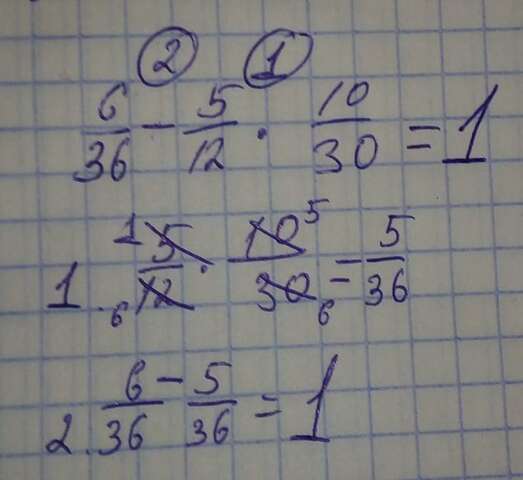 ② ①
6/36 - 5/12 · 10/30 = 1
1. 1 5/12 6 · 10/30 5 6 = 5/36
2. 6/36 - 5/36 = 1